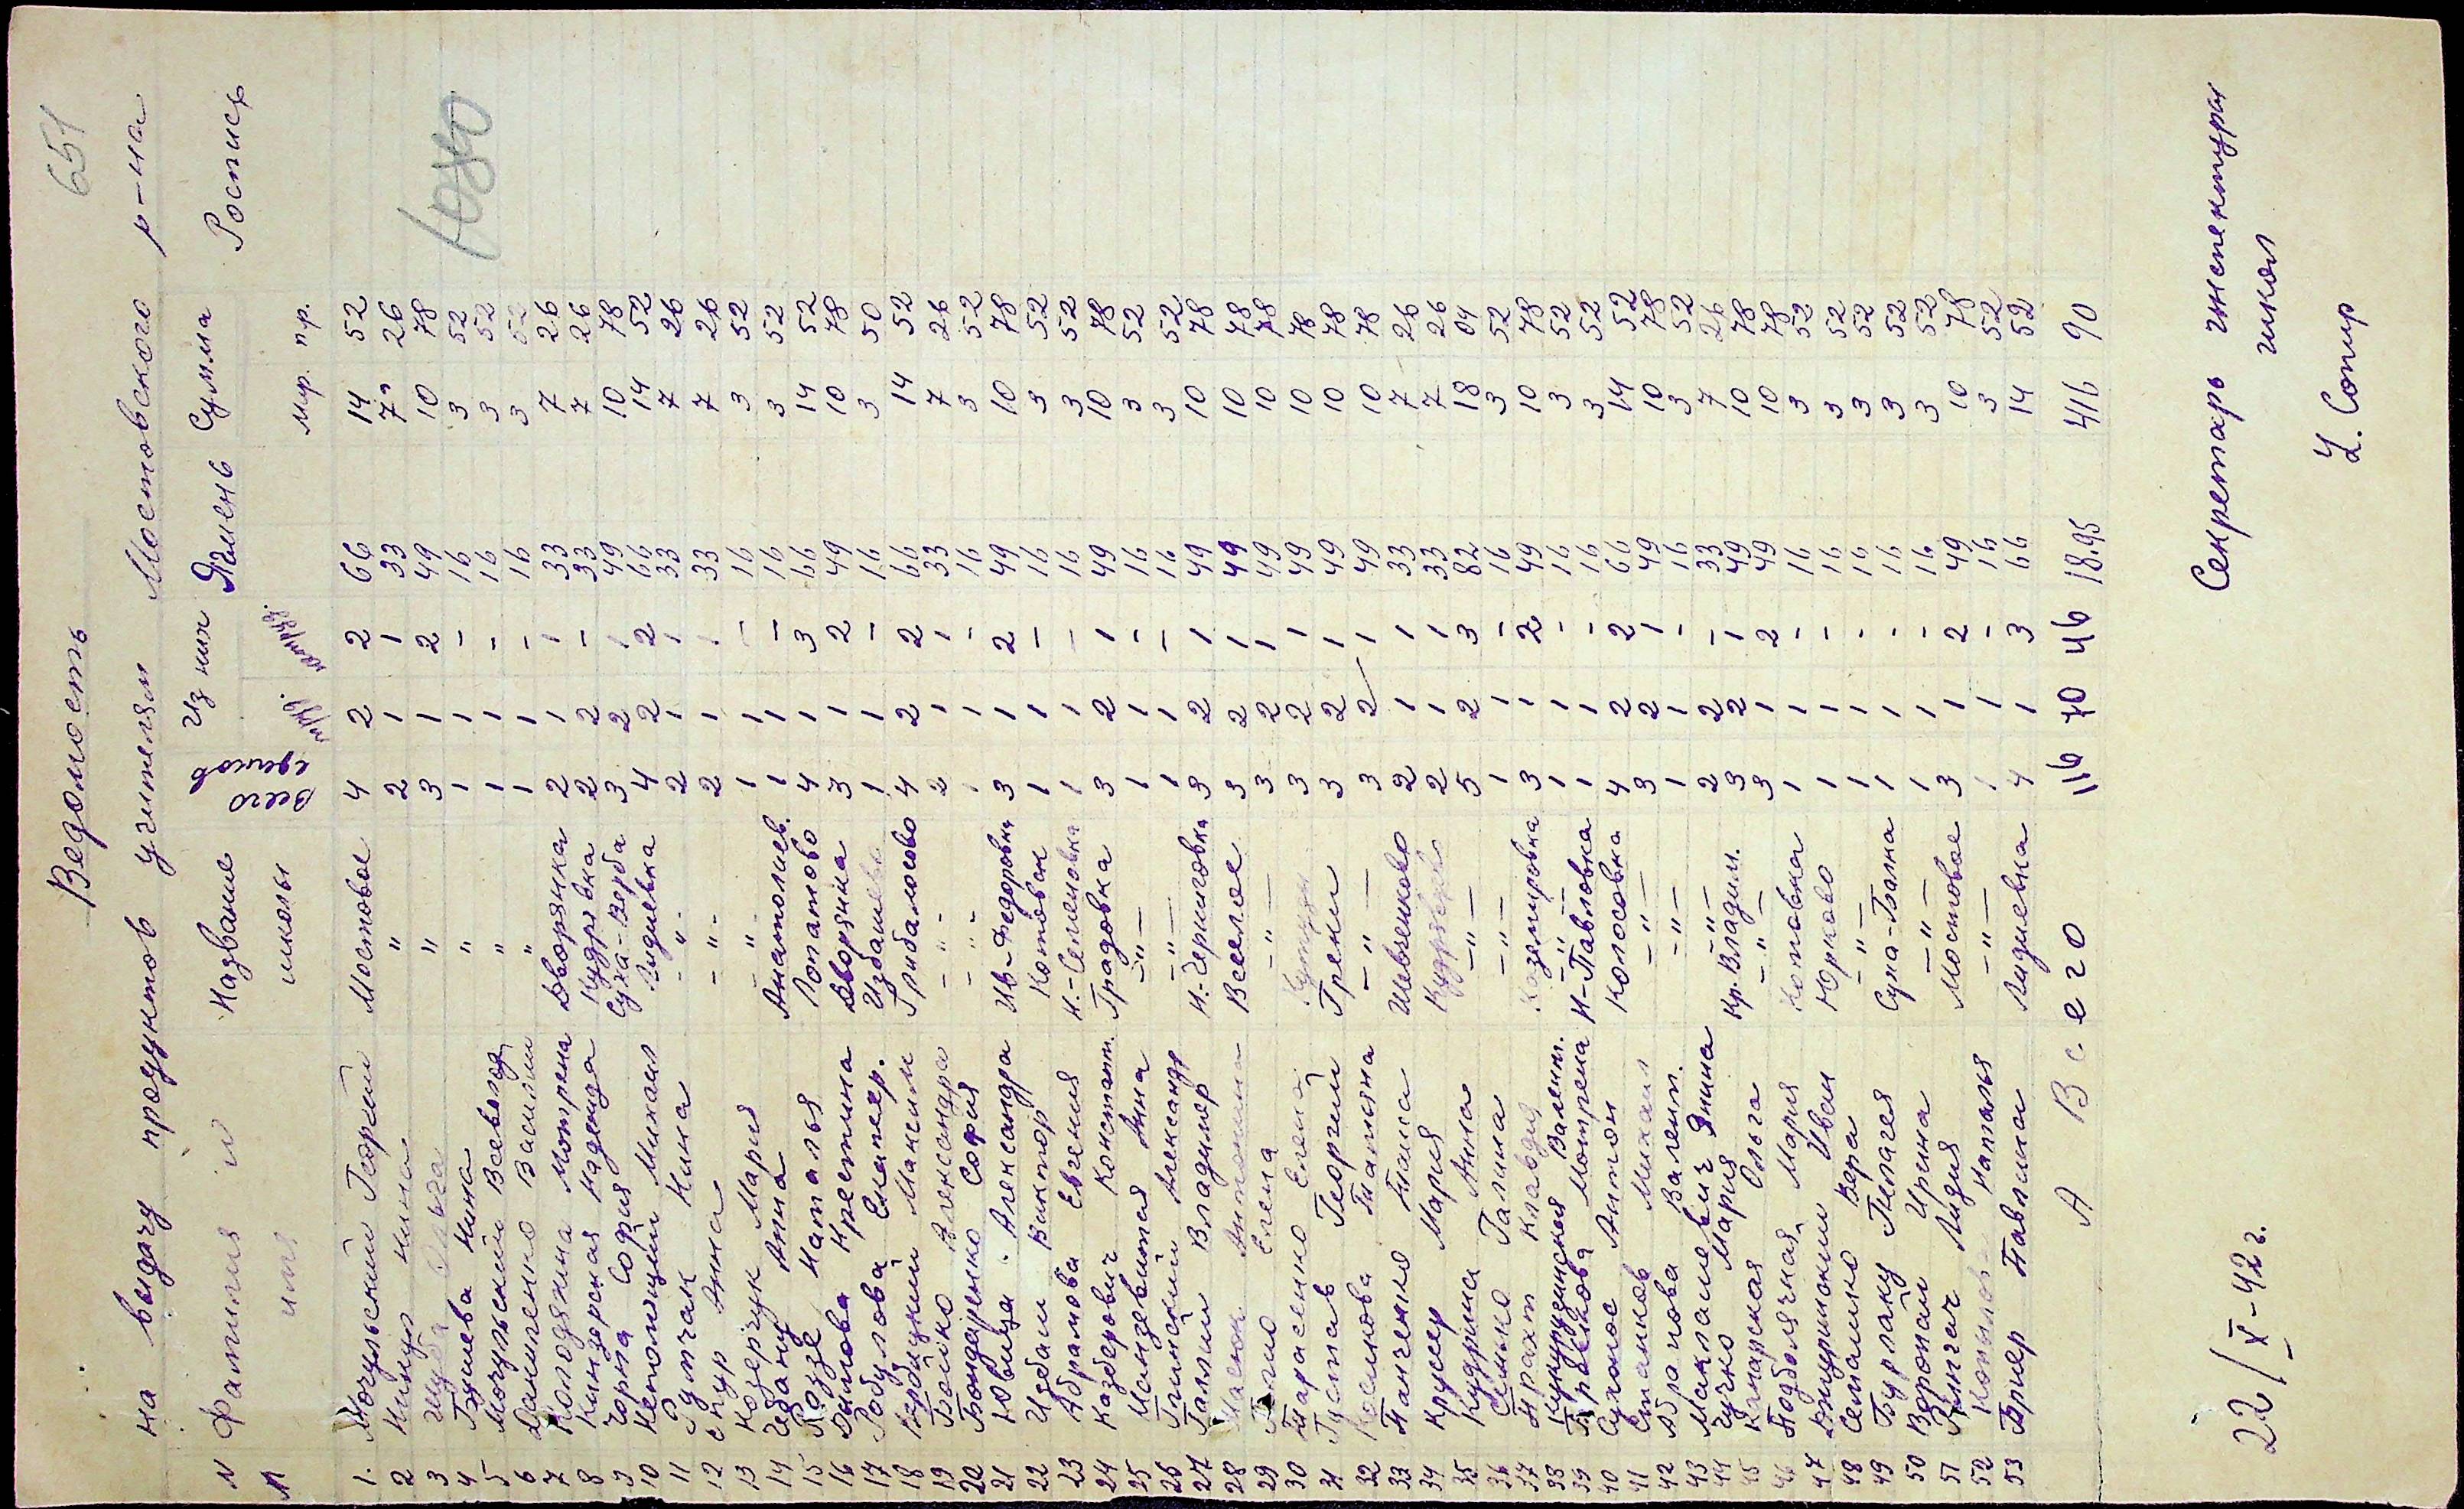 651
Ведомость
на видачу продуктов учителям Мостовского р-на
N Фамилия и Название всего Из них Ячмень Сумма Роспись
N имя школы едоков мр. пр.
1. Мочульский Георгий Мостовое 4 2 2 66 14 52
2 Нина " 2 1 1 33 7 26
3 Ольга " 3 1 2 49 10 78
4 Нина " 1 1 - 16 3 52
5 Мочульский Всеволод " 1 1 - 16 3 52
6 Даниленко Василий " 1 1 - 16 3 52
7 Колодяжна Мотрена Дворянка 2 1 1 33 7 26
8 Киндерская Надежда Кудрявка 2 2 - 33 7 26
9 Чорна София Суха-Верба 3 2 1 49 10 78
10 Непомящий Михаил Лидиевка 4 2 2 66 14 52
11 Румчак Нина -"- 2 1 1 33 7 26
12 Скур Анна -"- 2 1 1 33 7 26
13 Козерчук Мария -"- 1 1 - 16 3 52
14 Анна Анатолиев. 1 1 - 16 3 52
15 Розе Наталья Лопатово 4 1 3 66 14 52
16 Дилова Крестина Дворянка 3 1 2 49 10 78
17 Робулова Екатер. 1 1 - 16 3 50
18 Вербицкий Максим 4 2 2 66 14 52
19 Бойко Александра -"- 2 1 1 33 7 26
20 Бондаренко София -"- 1 1 - 16 3 52
21 Александра Ив-Федоровка 3 1 2 49 10 78
22 Цебам Виктор Котовск 1 1 - 16 3 52
23 Абрамова Евгения Н.-Семеновка 1 1 - 16 3 52
24 Казберович Констант. Градовка 3 2 1 49 10 78
25 Анна -"- 1 1 - 16 3 52
26 Глинский Александр -"- 1 1 - 16 3 52
27 Галлий Владимер Н.-Черниговка 3 2 1 49 10 78
28 Масюк Антонина Веселое 3 2 1 49 10 78
29 Елена -"- 3 2 1 49 10 78
30 Тарасенко Елена 3 2 1 49 10 78
31 Густав Георгий Греки 3 2 1 49 10 78
32 Татяна -"- 3 2 1 49 10 78
33 Панченко Шевченково 2 1 1 33 7 26
34 Крусер Мария 2 1 1 33 7 26
35 Кудрина Анна -"- 5 2 3 82 18 04
36 Сенько Галина -"- 1 1 - 16 3 52
37 Клавдия Каземировка 3 1 2 49 10 78
38 Кукурудзинская Валент. -"- 1 1 - 16 3 52
39 Мотрена Н-Павловка 1 1 - 16 3 52
40 Сухонос Антон Колосовка 4 2 2 66 14 52
41 Станков Михаил -"- 3 2 1 49 10 78
42 Валент. -"- 1 1 - 16 3 52
43 Янина -"- 2 2 - 33 7 26
44 Чучко Мария Кр. Владим. 3 2 1 49 10 78
45 Канарская Ольга -"- 3 1 2 49 10 78
46 Подболячная Мария Котовка 1 1 - 16 3 52
47 Иван Юрково 1 1 - 16 3 52
48 Семашко Вера -"- 1 1 - 16 3 52
49 Бурлаку Пелагея Суха-Балка 1 1 - 16 3 52
50 Воропай Ирина -"- 1 1 - 16 3 52
51 Лидия Мостовое 3 1 2 49 10 78
52 Наталья -"- 1 1 - 16 3 52
53 Бриер Павлина Лидиевка 4 1 3 66 14 52
Всего 116 70 46 18.95 416 90
22/XI-42 г.
Секретарь инспектуры
школ